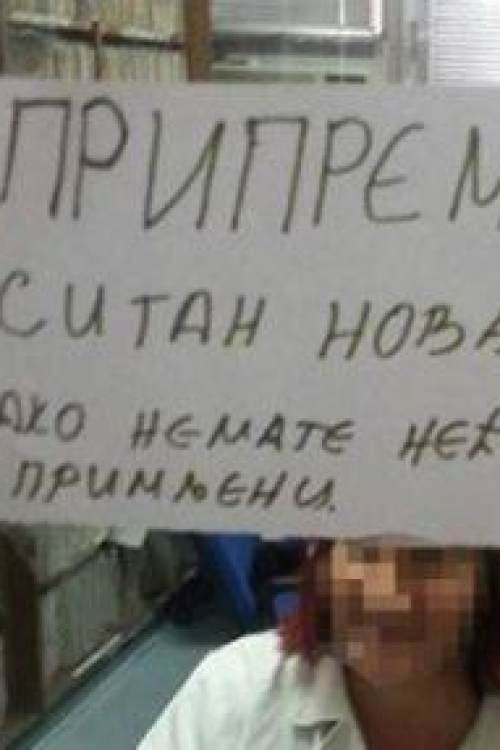 ПРИПРЕМ
СИТАН НОВА
АКО НЕМАТЕ НЕЋ
ПРИМЉЕНИ.